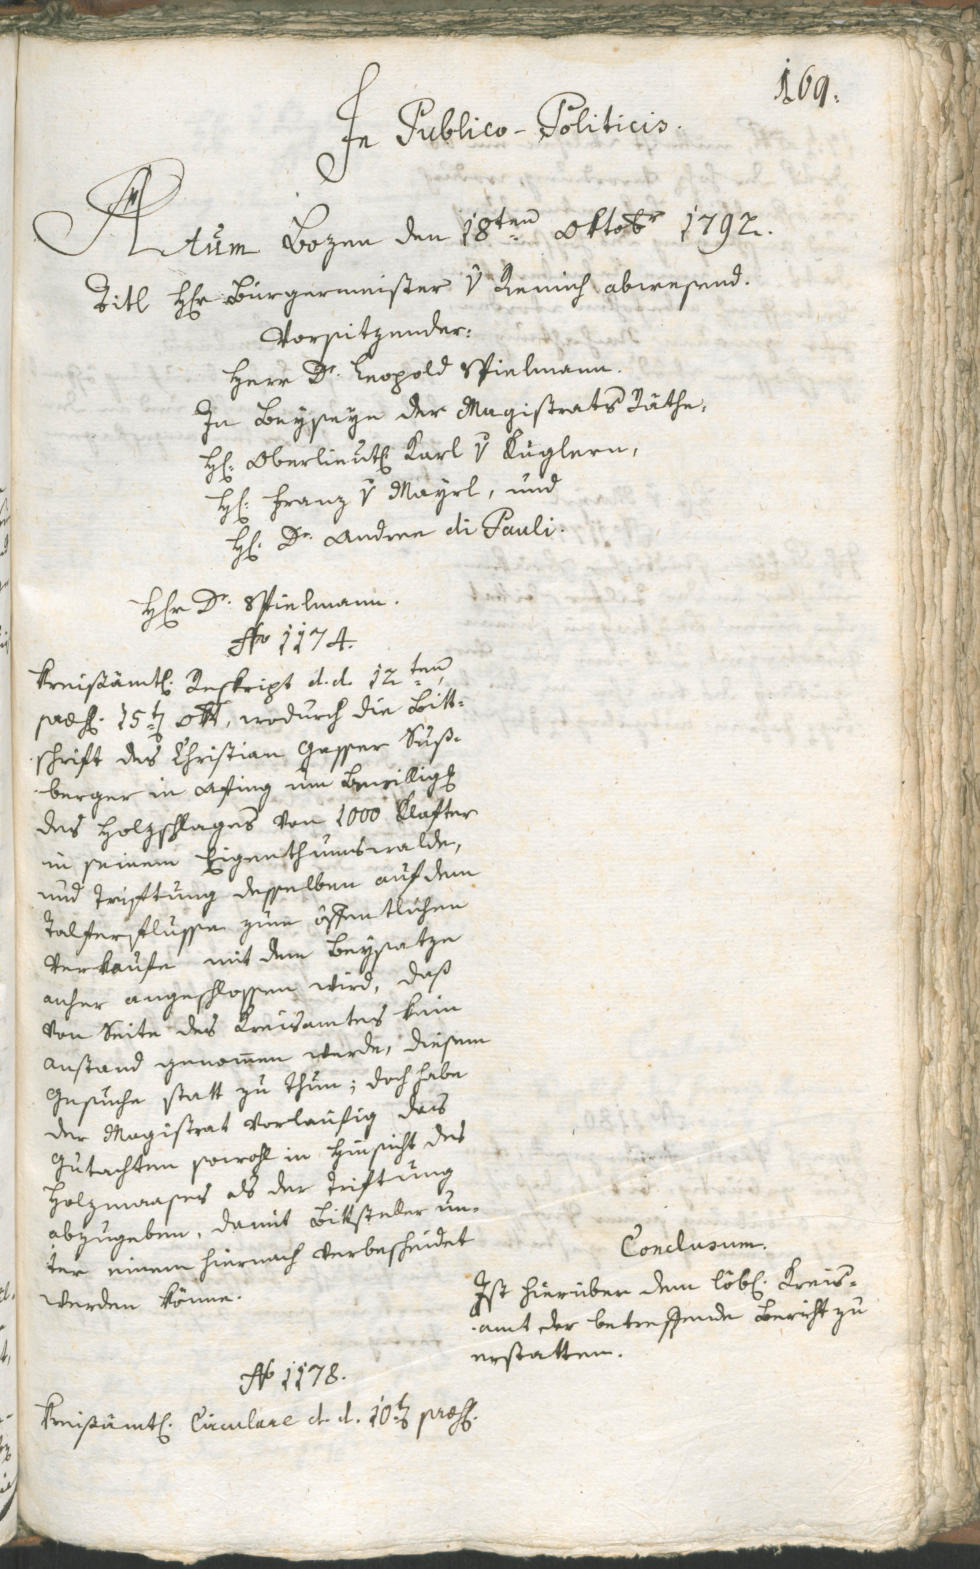 169.
In Publico-Politicis.
Actum Bozen den 18ten Oktobr 1792.
Titl Hr Bürgermeister v Remich abwesend.
Vorsitzender:
Herr Dr. Leopold Spielmann.
In Beyseyn der Magistrats Räthe,
H: Oberlieut: Karl v Kuglern,
H: Franz v Mayrl, und
H: Dr. Andree di Pauli.
Hr Dr. Spielmann.
No 1174.
Kreisämtl: Reskript d. d. 12ten,
præs: 15t Okt, wodurch die Bitt-
schrift des Christian Gasser Suß-
berger in Afing um Bewilligg
des Holzschlages von 1000 Klafter
in seinem Eigenthumswalde,
und Triftung desselben auf dem
Talferflusse zum öffentlichen
Verkaufe mit dem Beysatze
anher angeschlossen wird, daß
von Seite des Kreisamtes kein
Anstand genommen werde, diesem
Gesuche statt zu thun; doch habe
der Magistrat vorläufig das
Gutachten sowohl in Hinsicht des
Holzmaases als der Triftung
abzugeben, damit Bittsteller un-
ter einem hiernach verbescheidet
werden könne.
Conclusum.
Ist hierüber dem löbl: Kreis-
amt der betreffende Bericht zu
erstatten.
No 1178.
Kreisämtl: Circulare d. d. 10t præs: